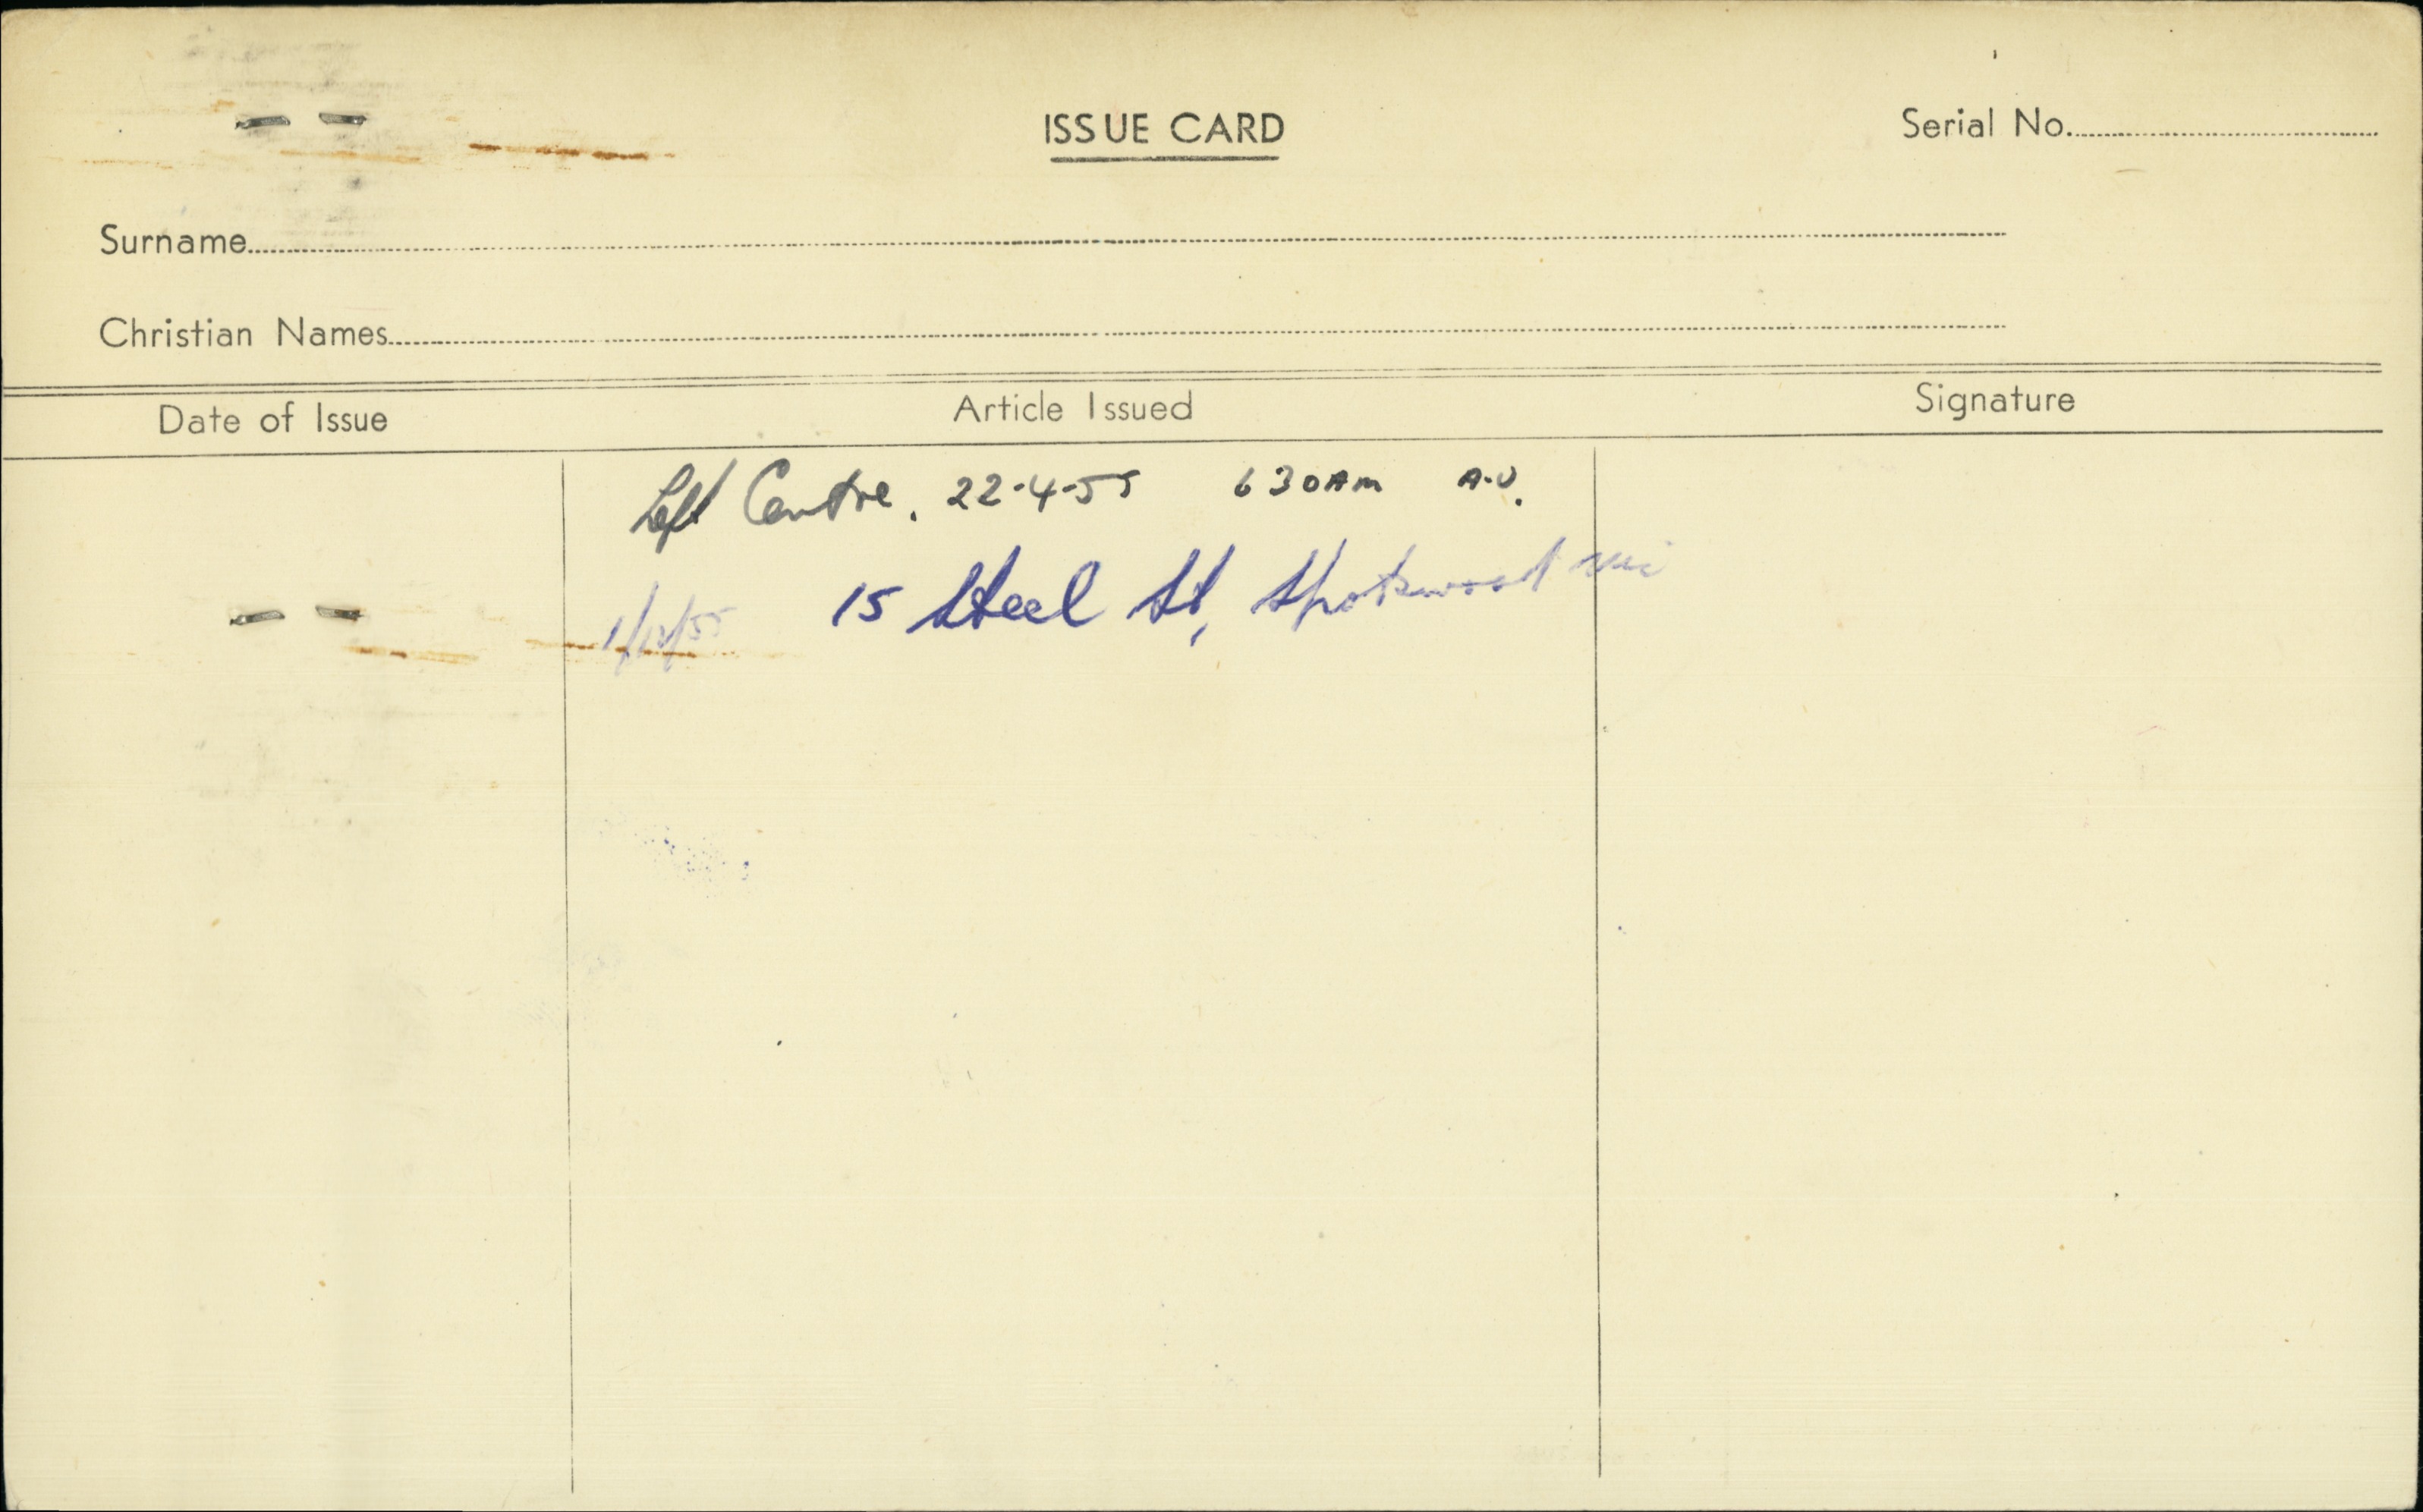 ISSUE CARD
Serial No.
Surname
Christian Names
Date of Issue Article Issued Signature
Left Centre. 22-4-55 630AM A.V.
1/12/55 15 Steel St, Spotswood Vic